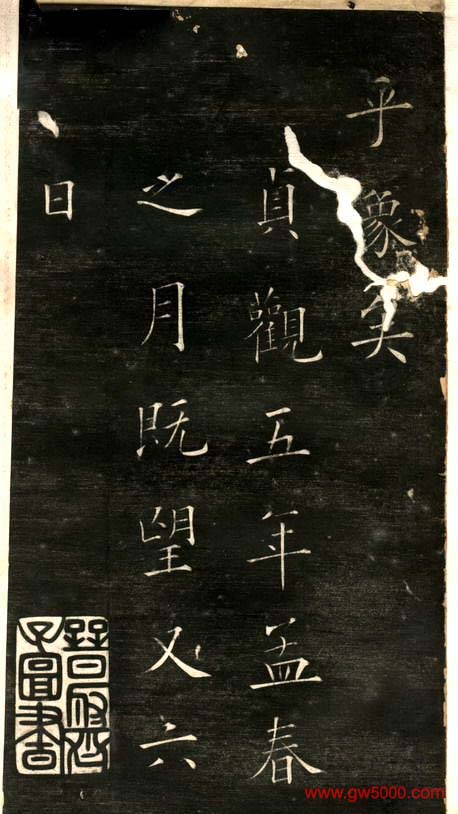 乎象矣
貞觀五年孟春
之月既望又六
日
子圖書
www.gw5000.com